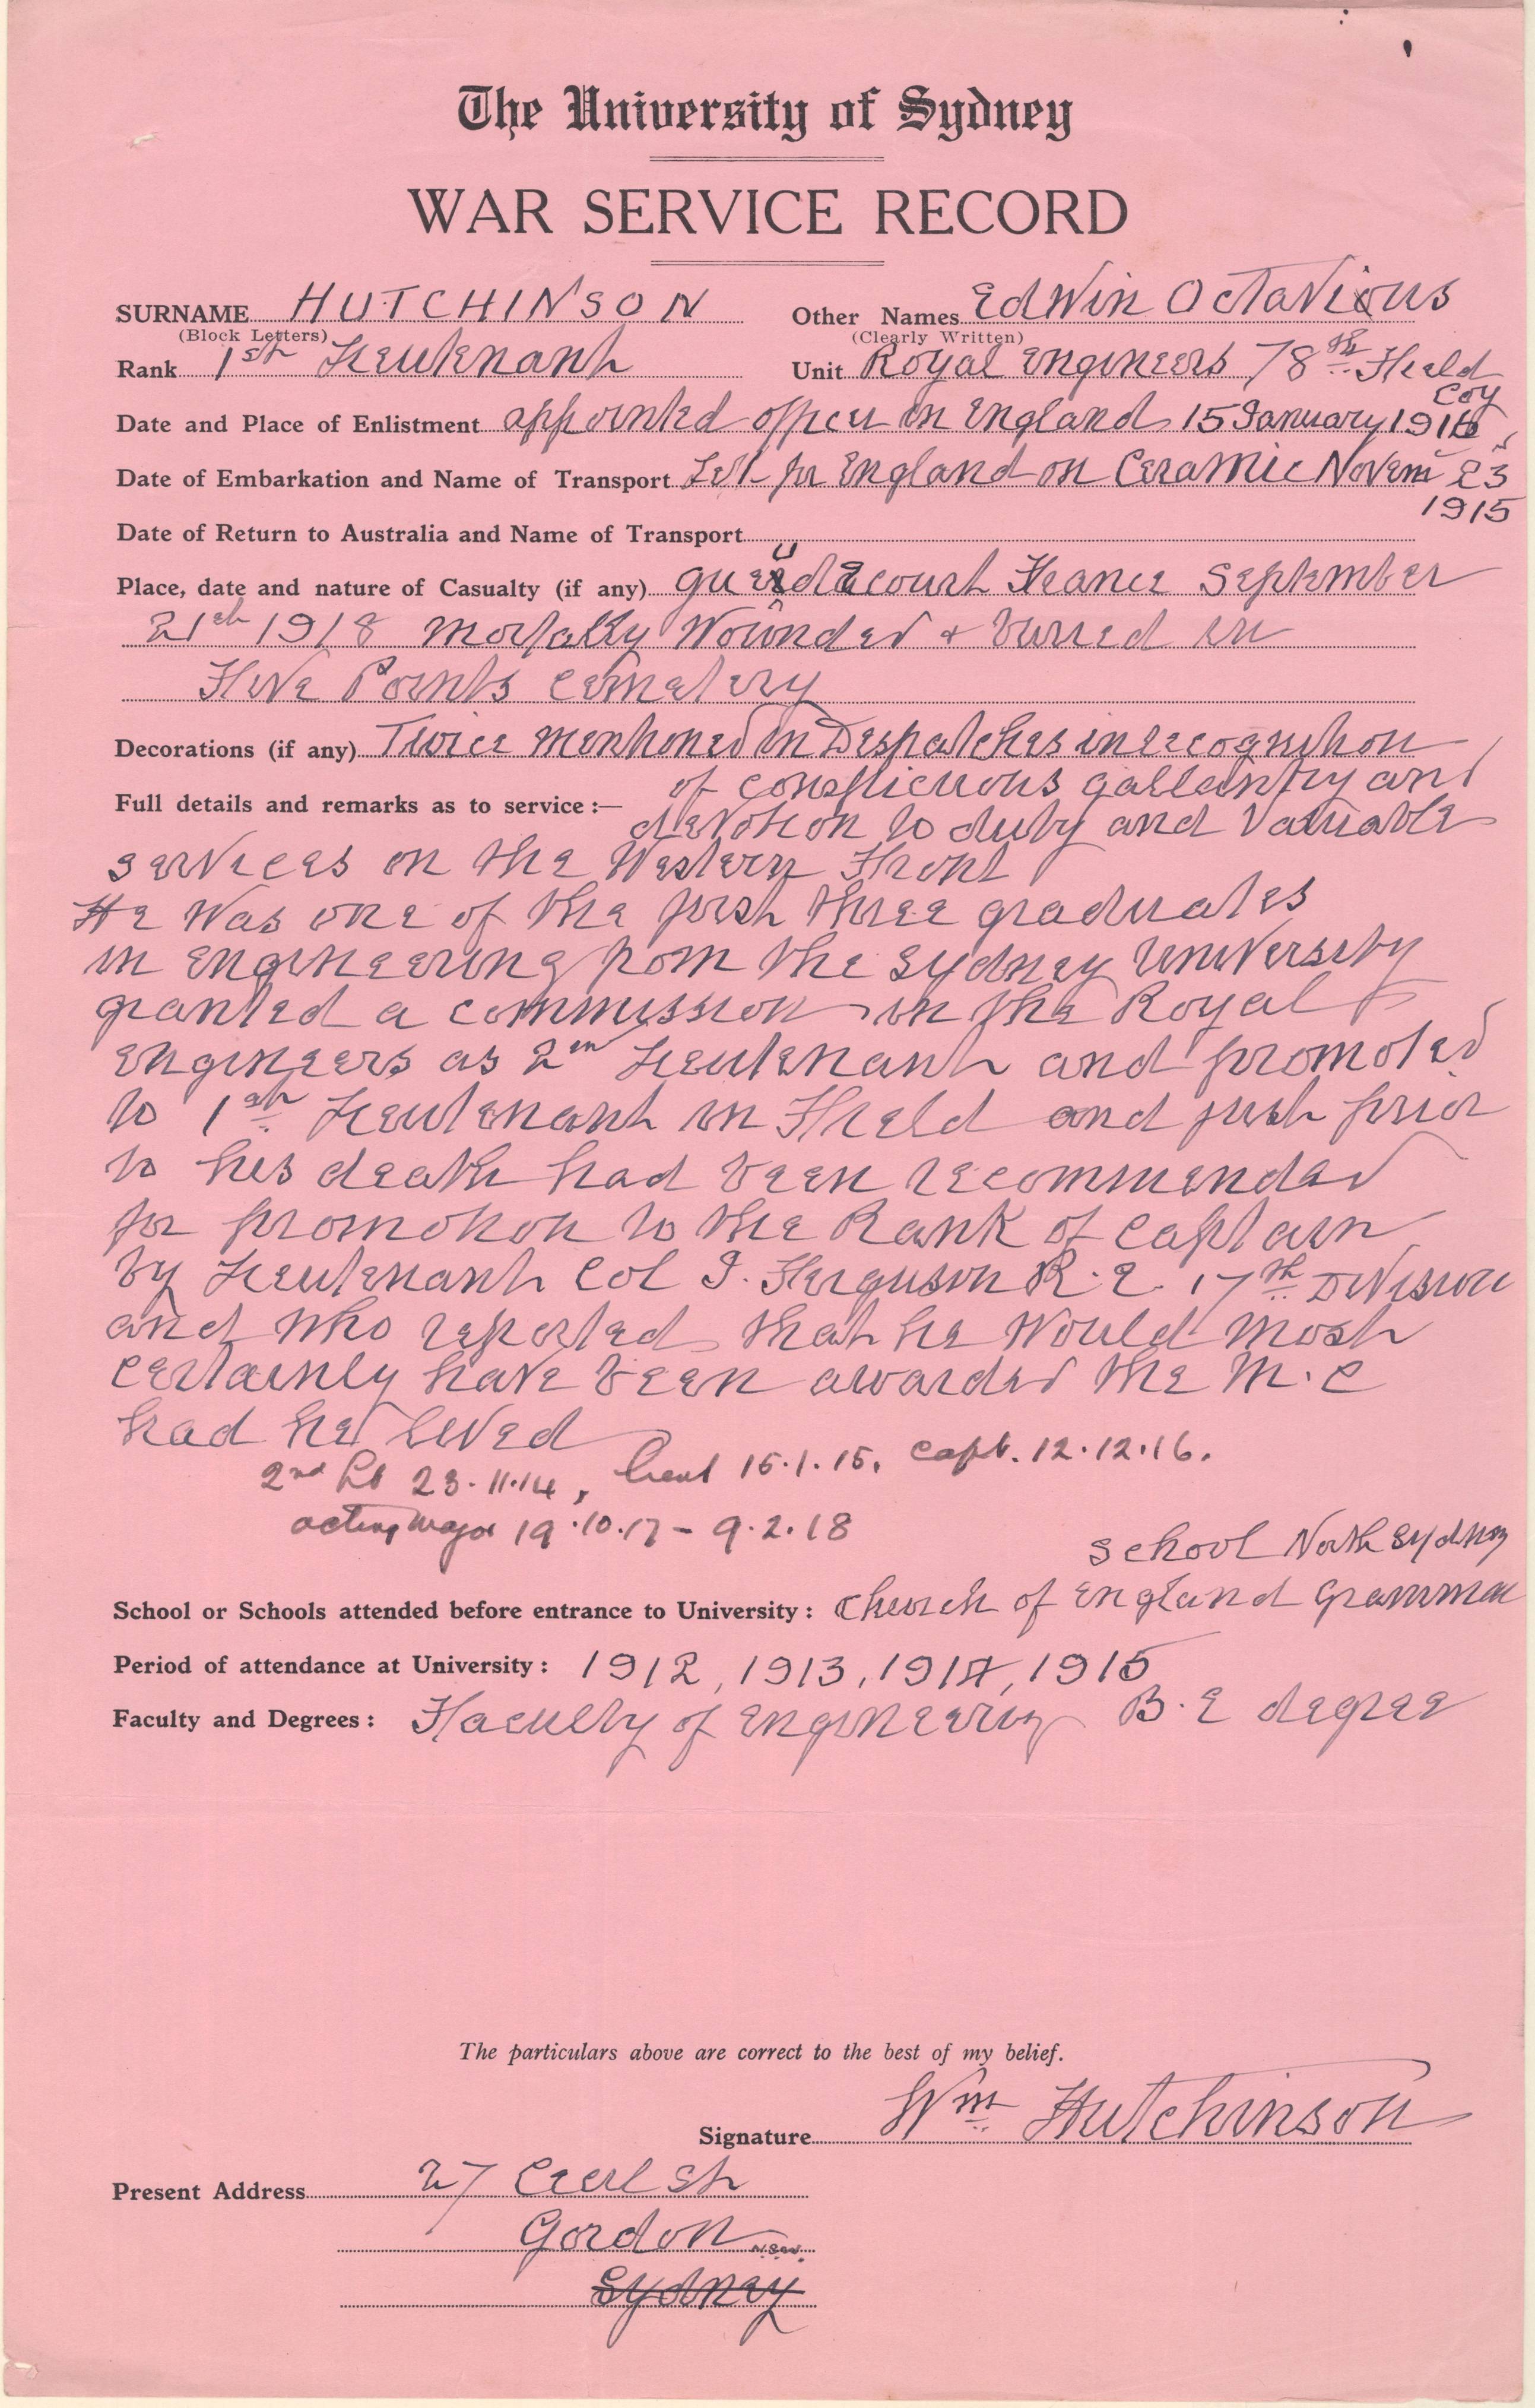 The University of Sydney
WAR SERVICE RECORD
SURNAME HUTCHINSON Other Names Edwin Octavious
(Block Letters) (Clearly Written)
Rank 1st Lieutenant Unit Royal Engineers 78th Field
Coy
Date and Place of Enlistment appointed officer in England 15 January 1916
Date of Embarkation and Name of Transport Left for England on Ceramic Novem 23
1915
Date of Return to Australia and Name of Transport
Place, date and nature of Casualty (if any) France September
21st 1918 Mortally Wounded & buried in
Five Points Cemetery
Decorations (if any) Twice mentioned in Despatches in recognition
of conspicuous gallantry and
Full details and remarks as to service:—
devotion to duty and valuable
services on the Western Front
He Was one of the first three graduates
in Engineering from the Sydney University
granted a commission in the Royal
Engineers as 2nd Lieutenant and promoted
to 1st Lieutenant in Field and just prior
to his death had been recommended
for promotion to the Rank of Captain
by Lieutenant Col J. Ferguson R.E. 17th Division
and who reported that he Would Most
certainly have been awarded the M.C
had he lived
2nd Lt 23.11.14, Lieut 15.1.15. Capt. 12.12.16.
acting Major 19.10.17 – 9.2.18
School North Sydney
School or Schools attended before entrance to University: Church of England Grammar
Period of attendance at University: 1912, 1913, 1914, 1915
Faculty and Degrees: Faculty of Engineering B.E degree
The particulars above are correct to the best of my belief.
Signature Wm Hutchinson
Present Address 27 Cecil St
Gordon N.S.W.
Sydney